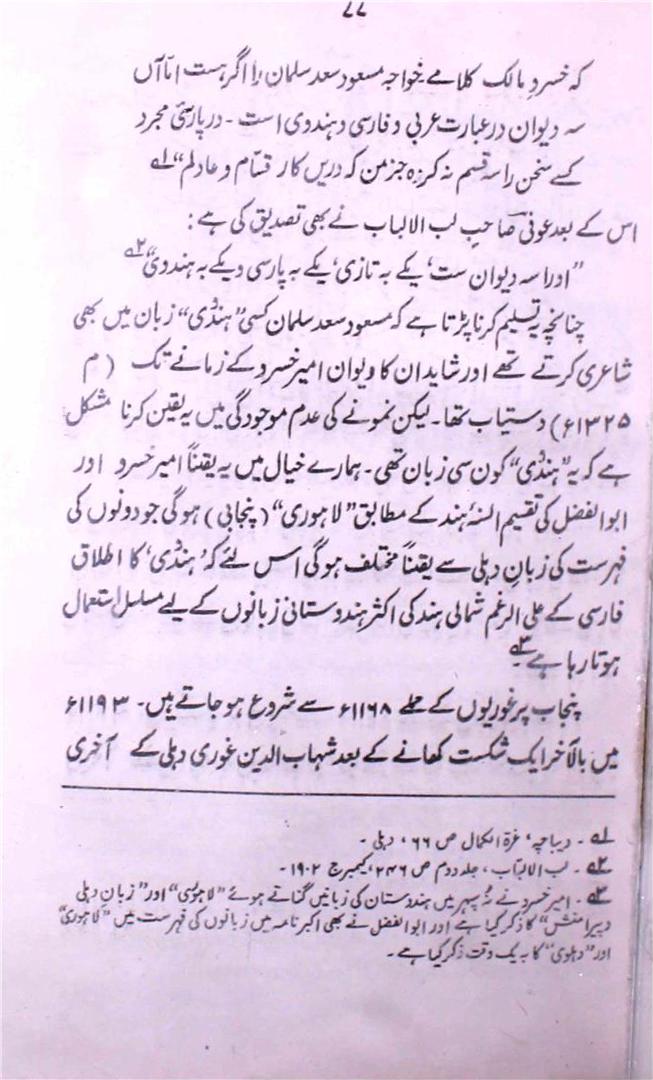 ۷۷
کہ خسرو مالک کلامے خواجہ مسعود سعد سلمان را اگر ہست امّا آں
سہ دیوان در عبارت عربی و فارسی و ہندوی است ۔ در پارسیٔ مجرد
کسے سخن را سہ قسم نہ کردہ جز من کہ دریں کار قسّام و عادلم“ ؎۱
اس کے بعد عوفی صاحبِ لب الالباب نے بھی تصدیق کی ہے :
”اورا سہ دیوان ست‘ یکے بہ تازی‘ یکے بہ پارسی و یکے بہ ہندوی“ ؎۲
چنانچہ یہ تسلیم کرنا پڑتا ہے کہ مسعود سعد سلمان کسی ”ہندُی“ زبان میں بھی
شاعری کرتے تھے اور شاید ان کا دیوان امیر خسرو کے زمانے تک (م
۱۳۲۵ء) دستیاب تھا۔ لیکن نمونے کی عدم موجودگی میں یہ یقین کرنا مشکل
ہے کہ یہ ”ہندُی“ کون سی زبان تھی۔ ہمارے خیال میں یہ یقیناً امیر خسرو اور
ابوالفضل کی تقیم السنۂ ہند کے مطابق ”لاہوری“ (پنجابی) ہوگی جو دونوں کی
فہرست کی زبانِ دہلی سے یقیناً مختلف ہوگی اس لئے کہ ’ہندُی‘ کا اطلاق
فارسی کے علی الرغم شمالی ہند کی اکثر ہندوستانی زبانوں کے لیے مسلسل استعمال
ہوتا رہا ہے ؎۳۔
پنجاب پر غوریوں کے حملے ۱۱۶۸ء سے شروع ہو جاتے ہیں۔ ۱۱۹۳ء
میں بالآخر ایک شکست کھانے کے بعد شہاب الدین غوری دہلی کے آخری
؎۱ ۔ دیباچہ، غرۃ الکمال ص ۶۶، دہلی ۔
؎۲ ۔ لب الالباب، جلد دوم ص ۲۴۶، کیمبرج ۱۹۰۲ ۔
؎۳ ۔ امیر خسرو نے نُہ سپہر میں ہندوستان کی زبانیں گناتے ہوئے ”لاہوری“ اور ”زبانِ دہلی
و پیرامنش“ کا ذکر کیا ہے اور ابوالفضل نے بھی اکبر نامہ میں زبانوں کی فہرست میں ”لاہوری“
اور ”دہلوی“ کا بہ یک وقت ذکر کیا ہے۔